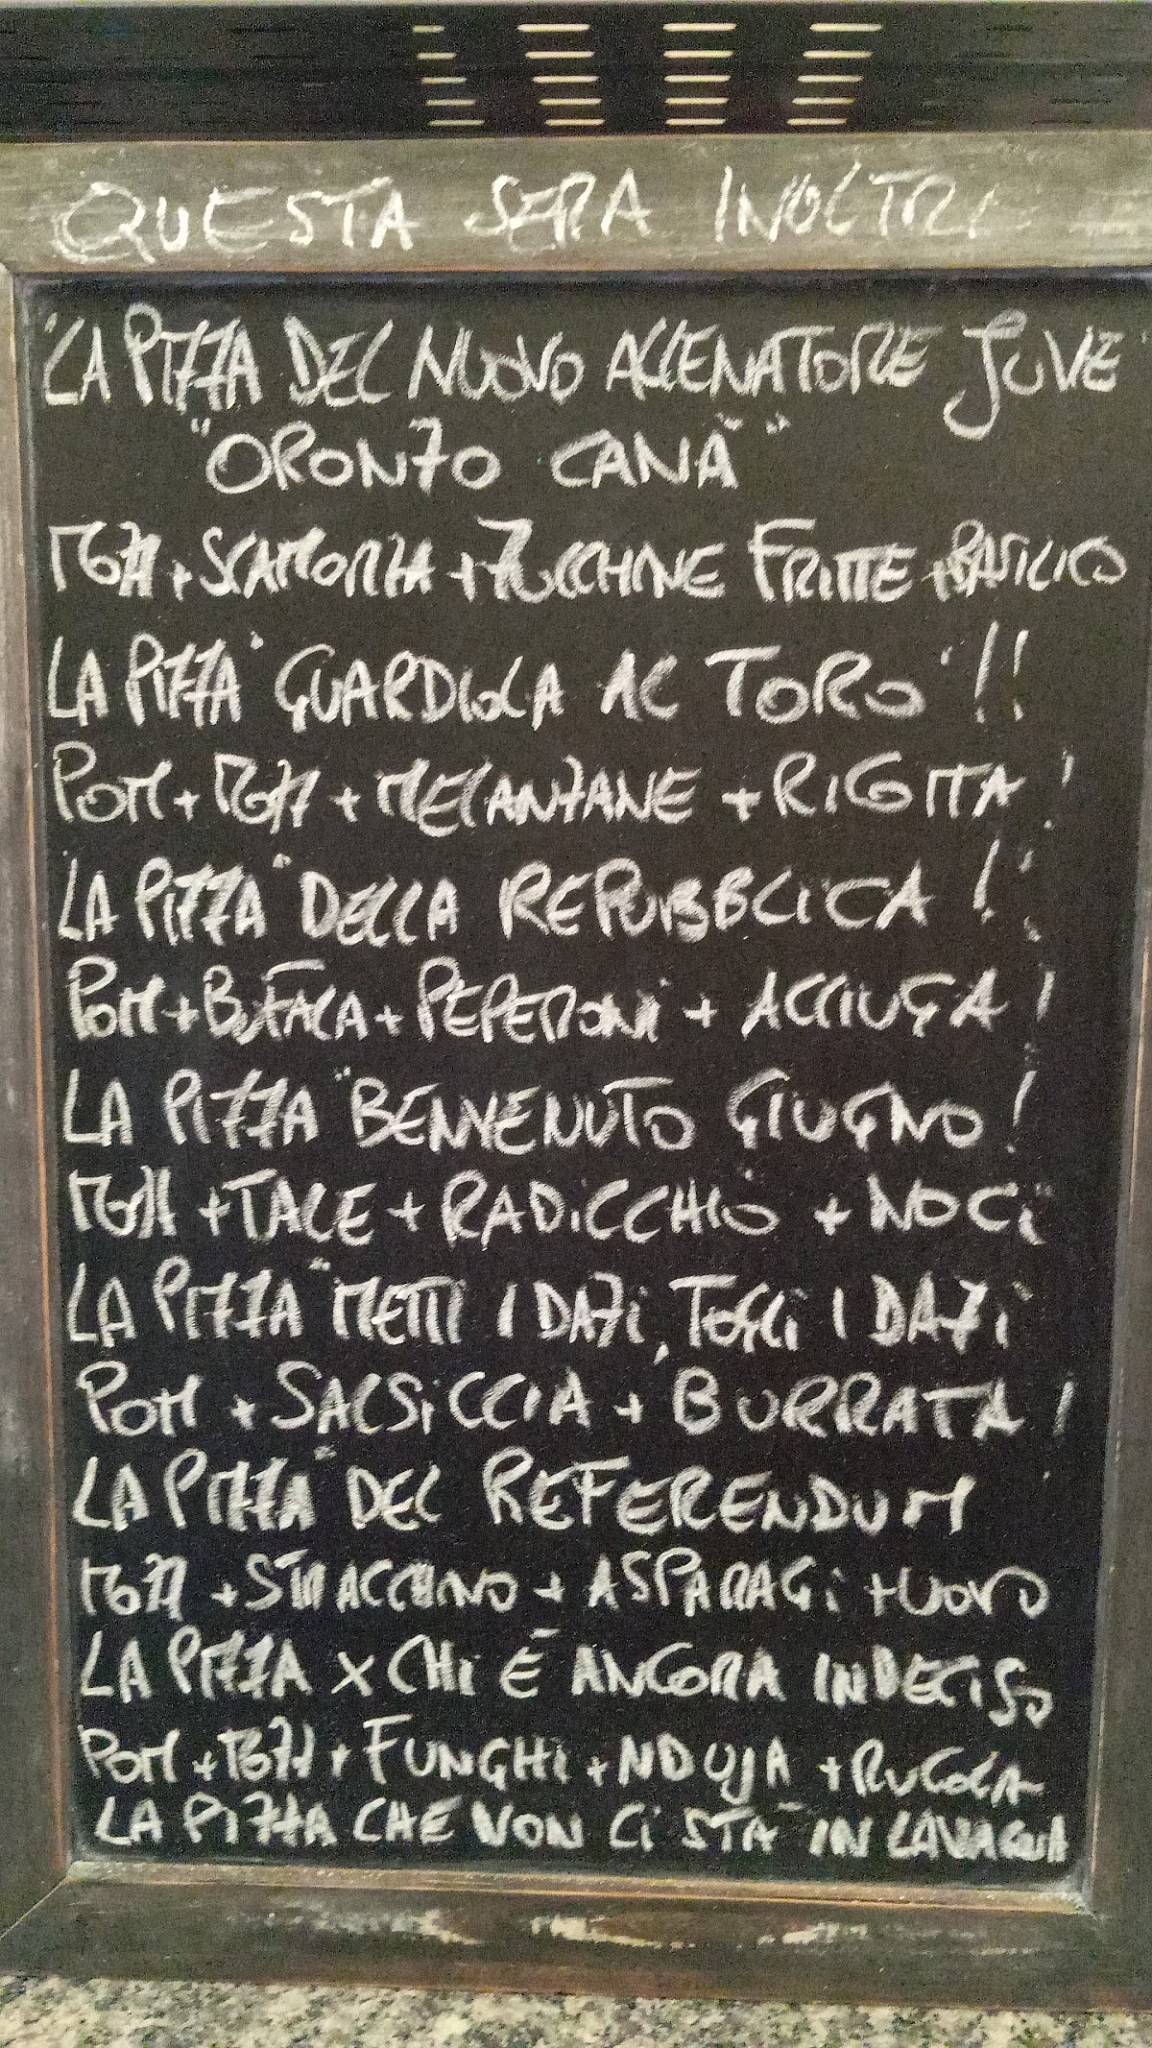 QUESTA SERA INOLTRE
"LA PIZZA DEL NUOVO ALLENATORE JUVE
"ORONZO CANÀ"
MOZZ+SCAMORZA+ZUCCHINE FRITTE+BASILICO
LA PIZZA "GUARDIOLA AL TORO"!!
POM+MOZZ+MELANZANE+RICOTTA!
LA PIZZA "DELLA REPUBBLICA!!
POM+BUFALA+PEPERONI+ACCIUGA!
LA PIZZA "BENVENUTO GIUGNO!
MOZZ+TALE+RADICCHIO+NOCI
LA PIZZA "METTI I DAZI, TOGLI I DAZI"
POM+SALSICCIA+BURRATA!
LA PIZZA "DEL REFERENDUM"
MOZZ+STRACCHINO+ASPARAGI+UOVO
LA PIZZA X CHI È ANCORA INDECISO
POM+MOZZ+FUNGHI+NDUJA+RUCOLA
LA PIZZA CHE NON CI STA IN LAVAGNA